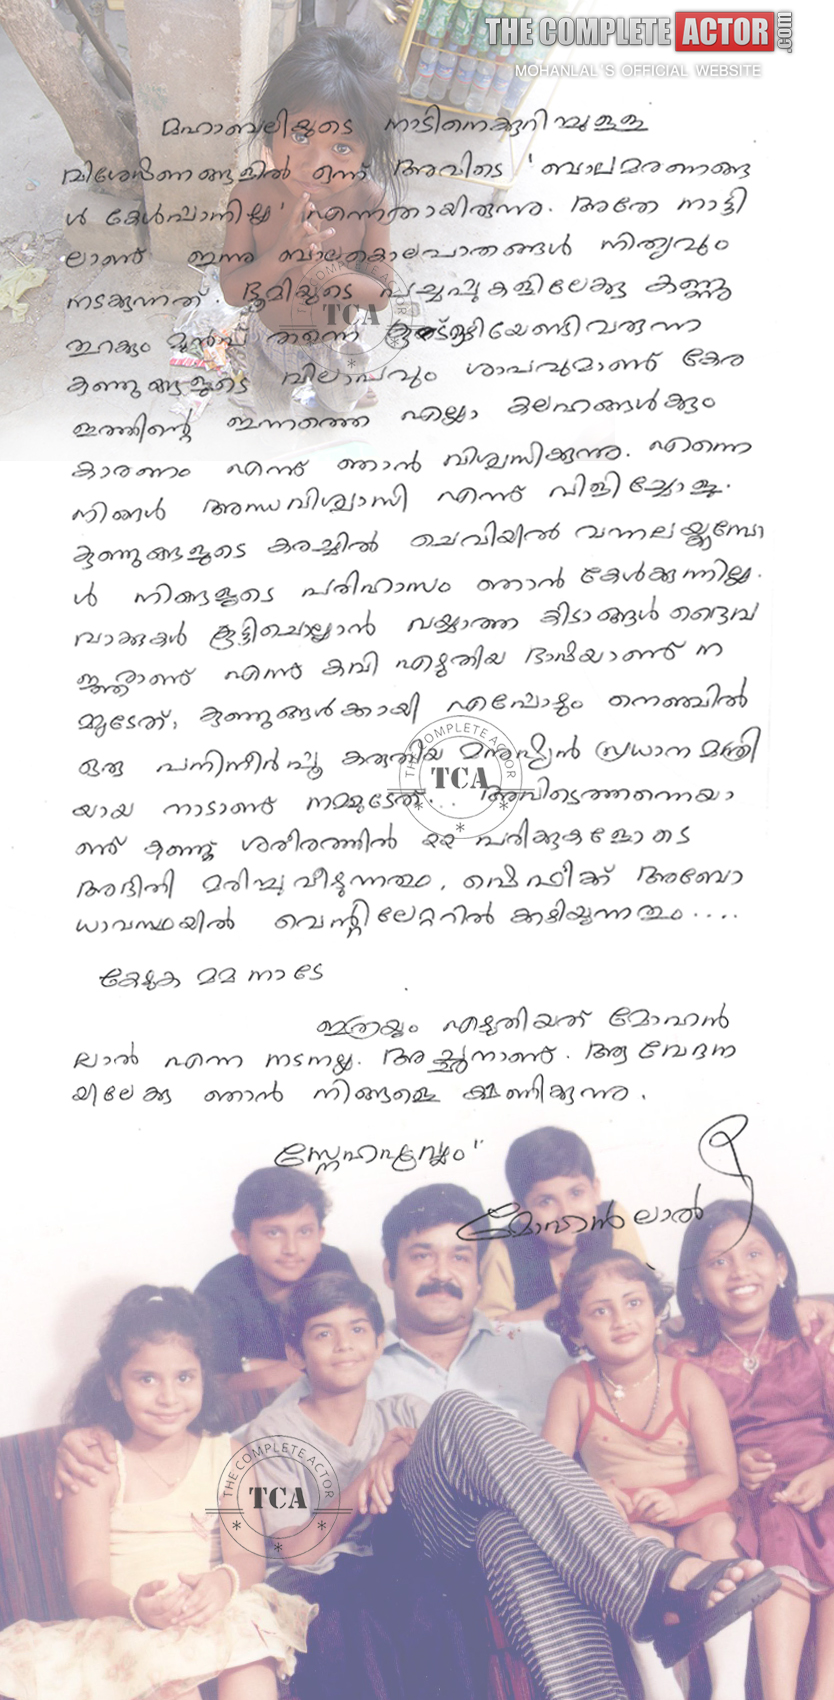 THE COMPLETE ACTOR .com
MOHANLAL'S OFFICIAL WEBSITE
മഹാബലിയുടെ നാടിനെക്കുറിച്ചുള്ള
വിശേഷണങ്ങളിൽ ഒന്ന് അവിടെ 'ബാലമരണങ്ങ
ൾ കേൾപ്പാനില്ല' എന്നതായിരുന്നു. അതേ നാട്ടി
ലാണ് ഇന്നു ബാലകൊലപാതങ്ങൾ നിത്യവും
നടക്കുന്നത്. ഭൂമിയുടെ പച്ചപ്പുകളിലേക്കു കണ്ണു
തുറക്കും മുൻപ് തന്നെ വരുന്ന
കുഞ്ഞുങ്ങളുടെ വിലാപവും ശാപവുമാണ് കേര
ളത്തിന്റെ ഇന്നത്തെ എല്ലാ കലഹങ്ങൾക്കും
കാരണം എന്ന് ഞാൻ വിശ്വസിക്കുന്നു. എന്നെ
നിങ്ങൾ അന്ധവിശ്വാസി എന്ന് വിളിച്ചോളൂ.
കുഞ്ഞുങ്ങളുടെ കരച്ചിൽ ചെവിയിൽ വന്നലയ്ക്കുമ്പോ
ൾ നിങ്ങളുടെ പരിഹാസം ഞാൻ കേൾക്കുന്നില്ല.
വാക്കുകൾ കൂട്ടിചൊല്ലാൻ വയ്യാത്ത കിടാങ്ങൾ ദൈവ
ജ്ഞരാണ് എന്ന് കവി എഴുതിയ ഭാഷയാണ് ന
മ്മുടേത്, കുഞ്ഞുങ്ങൾക്കായി എപ്പോഴും നെഞ്ചിൽ
ഒരു പനിനീർപ്പൂ കരുതിയ മനുഷ്യൻ പ്രധാന മന്ത്രി
യായ നാടാണ് നമ്മുടേത്... അവിടെത്തന്നെയാ
ണ് കുഞ്ഞു ശരീരത്തിൽ ൨൨ പരിക്കുകളോടെ
അദിതി മരിച്ചു വീഴുന്നതും, ഷെഫീക്ക് അബോ
ധാവസ്ഥയിൽ വെന്റിലേറ്ററിൽ കഴിയുന്നതും....
കേഴുക മമ നാടേ
ഇത്രയും എഴുതിയത് മോഹൻ
ലാൽ എന്ന നടനല്ല. അച്ഛനാണ്. ആ വേദന
യിലേക്കു ഞാൻ നിങ്ങളെ ക്ഷണിക്കുന്നു.
സ്നേഹപൂർവ്വം
മോഹൻലാൽ
THE COMPLETE ACTOR
TCA
THE COMPLETE ACTOR
TCA
THE COMPLETE ACTOR
TCA